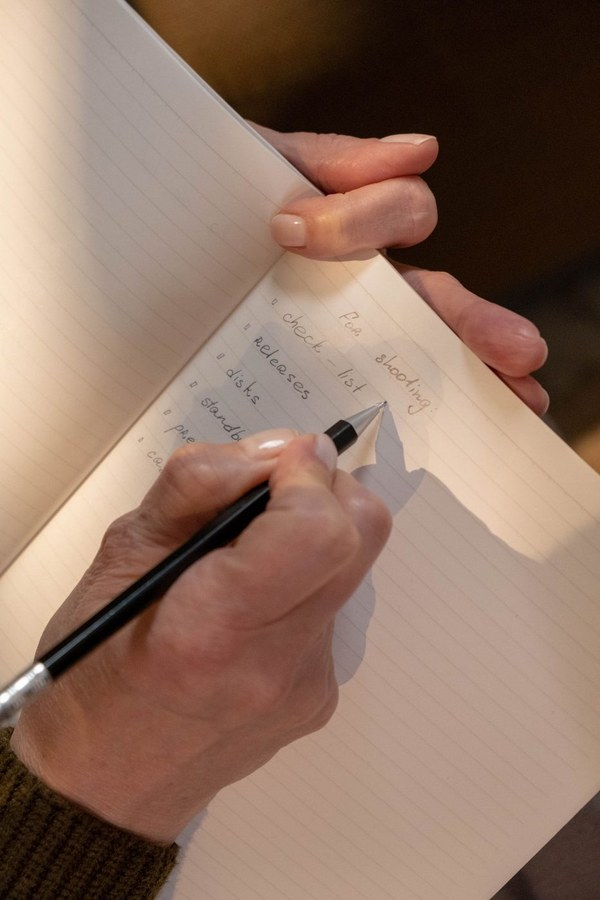 For shooting:
◦ check-list
◦ releases
◦ disks
◦ standb
◦ pre
◦ ca